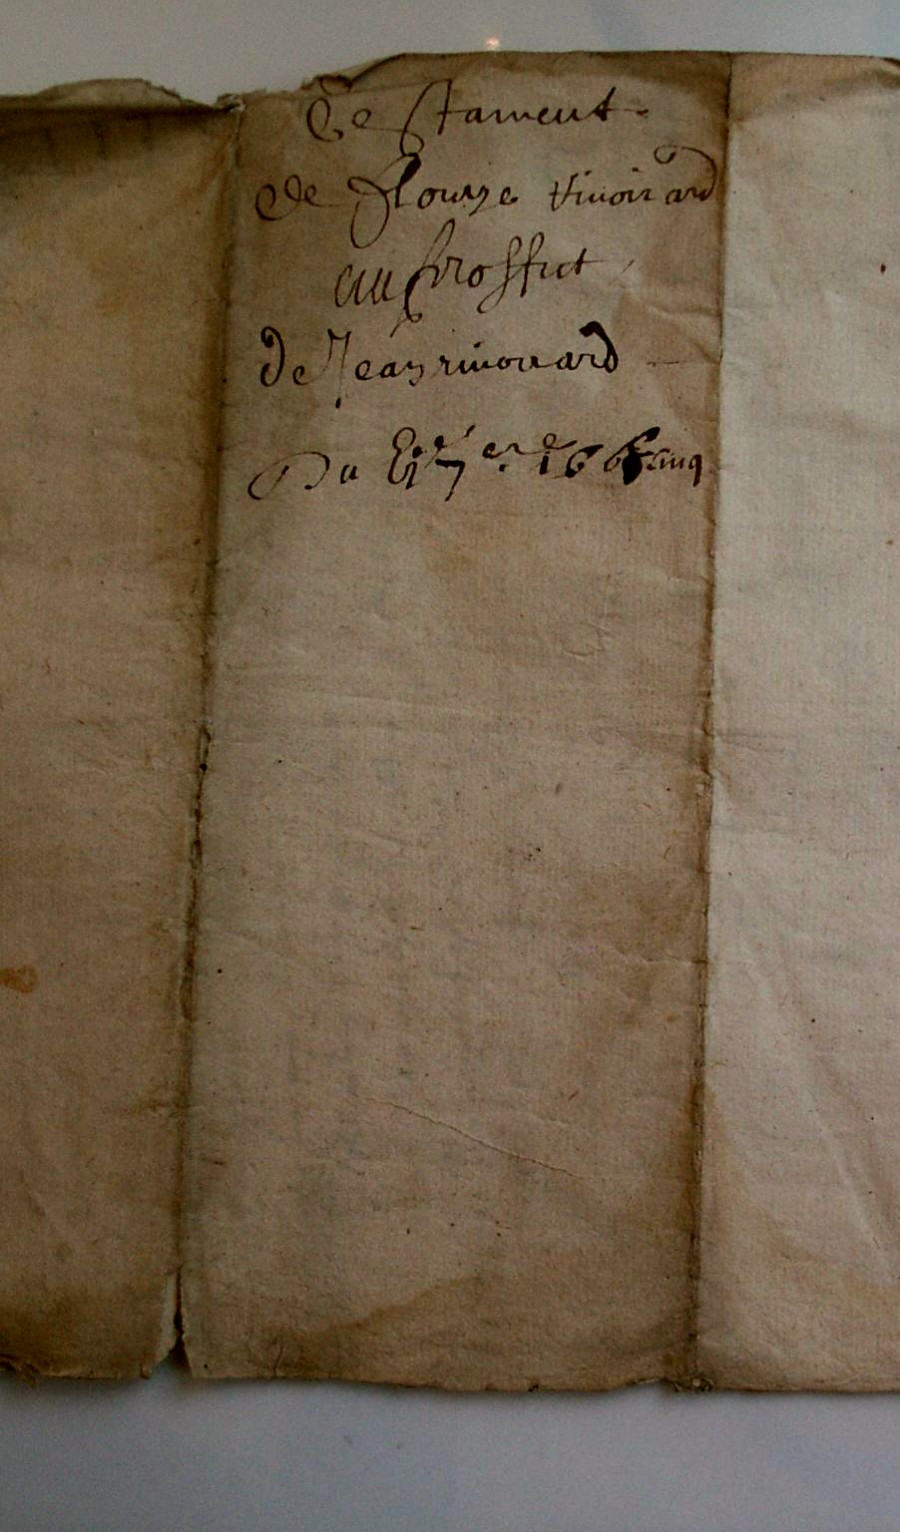 Testament
de flourye rivoirard
au proffict
de Jean rivoirard
Du 1665 cinq